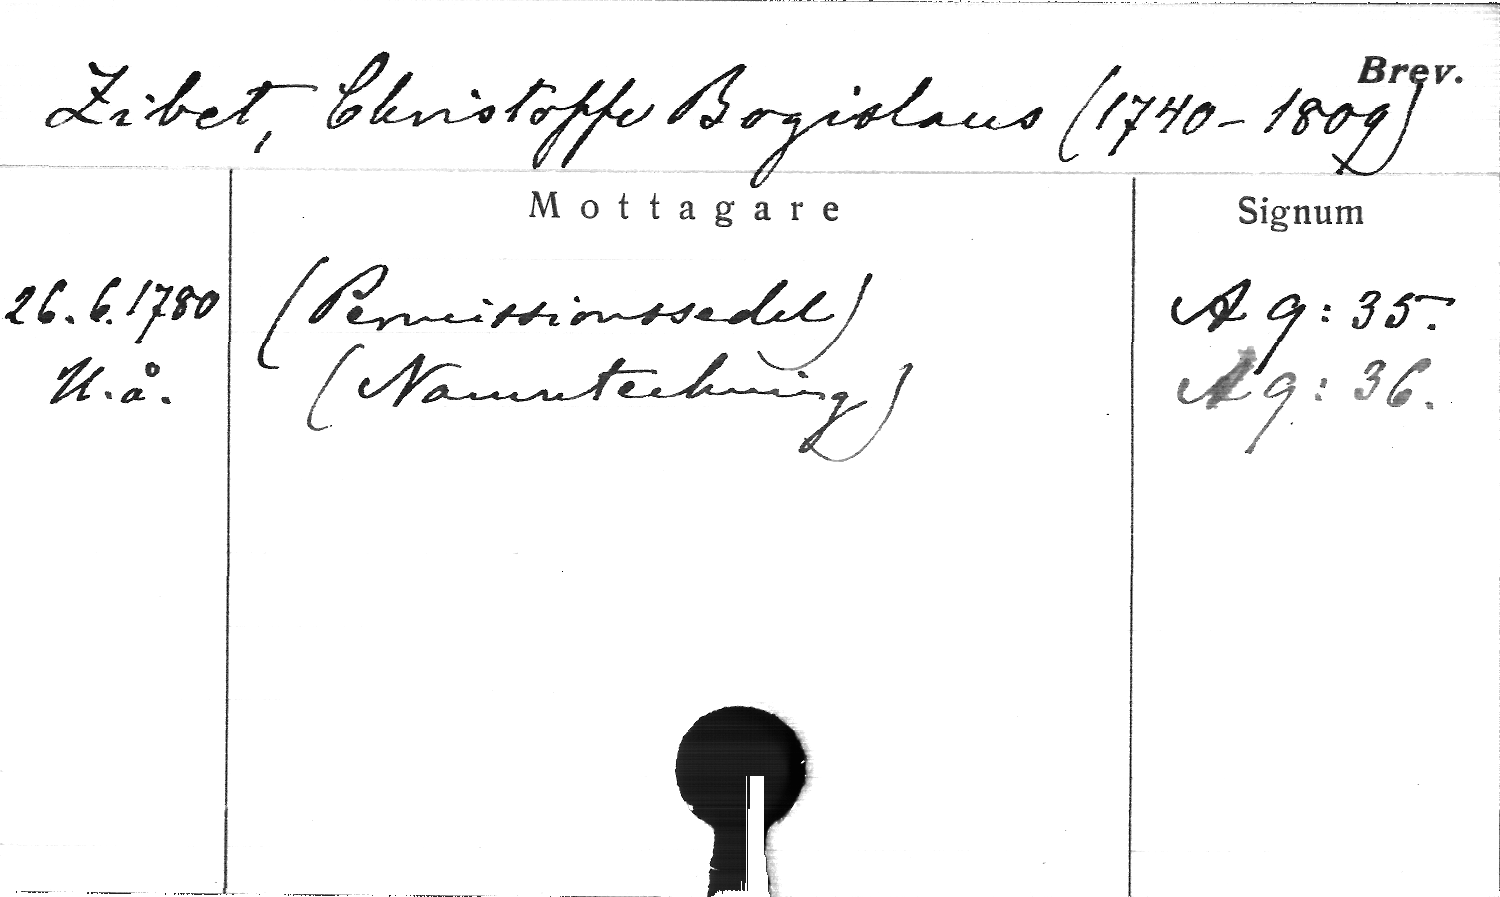 Brev.
Zibet, Christoffer Bogislaus (1740-1809)
Mottagare
Signum
26.6.1780 (Permissionssedel) A 9:35.
U.å. (Namnteckning) A 9:36.